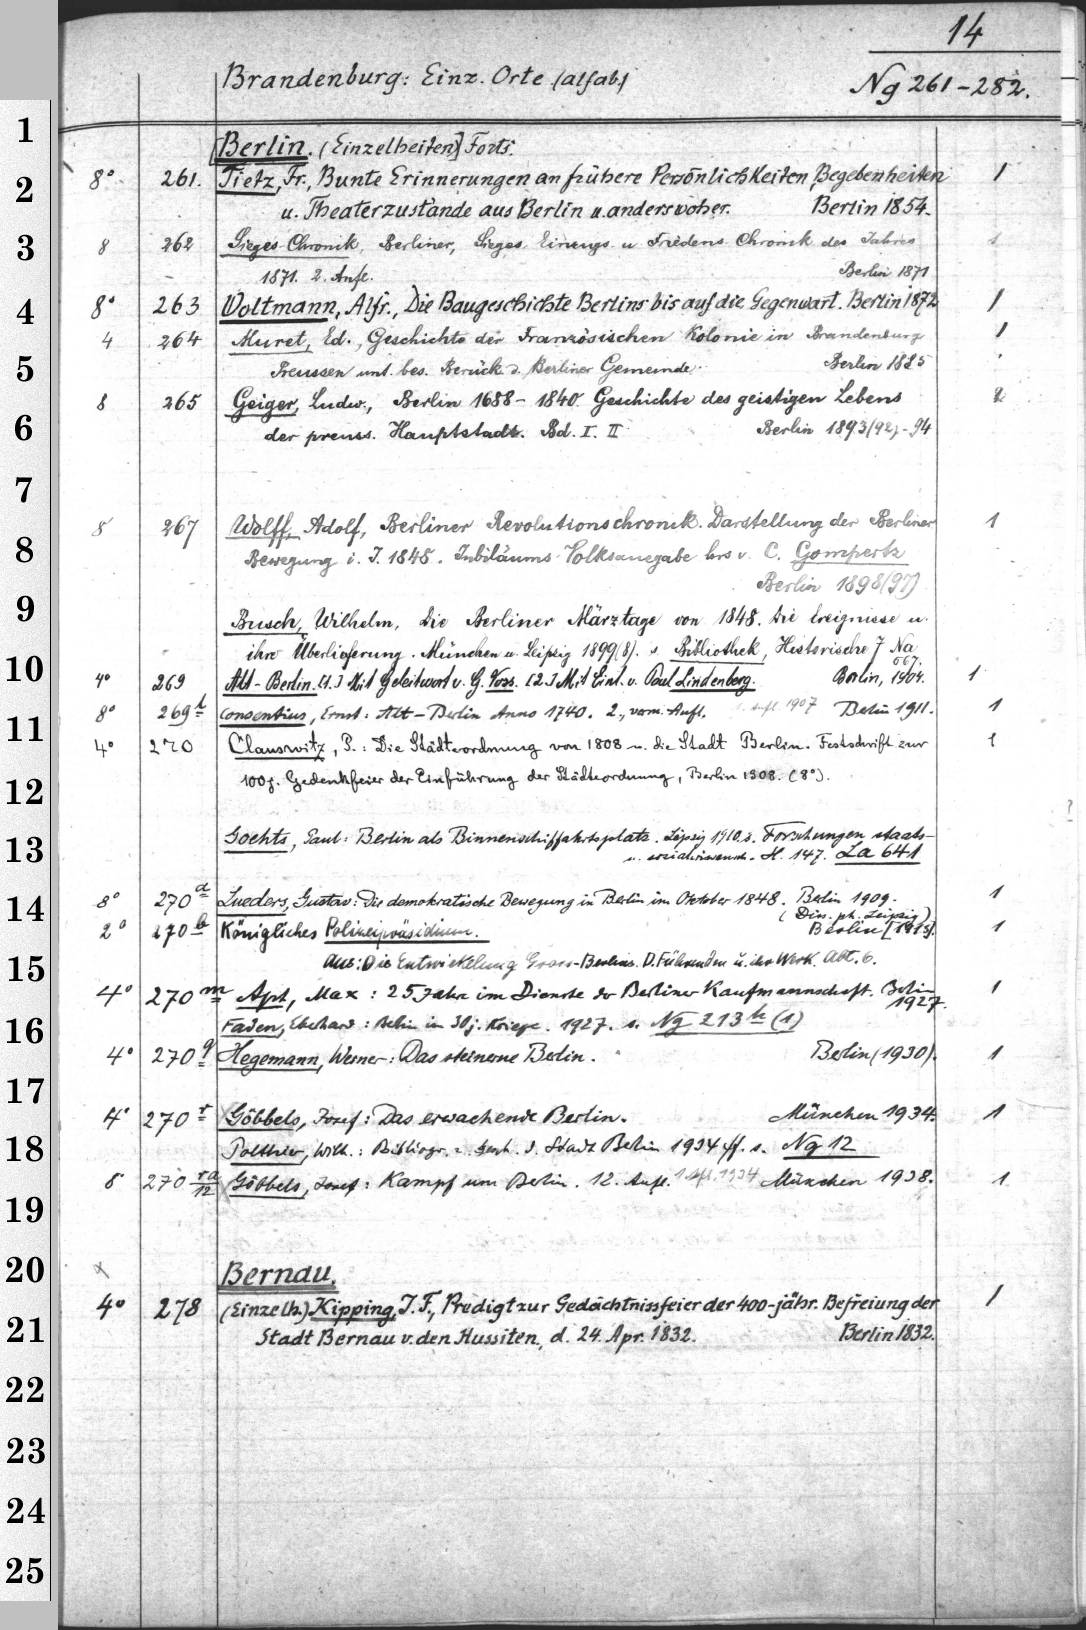 14
Brandenburg: Einz. Orte (alfab.)
Ng 261-282.
1
[Berlin. (Einzelheiten)] Forts.
2
8° 261. Tietz, Fr., Bunte Erinnerungen an frühere Persönlichkeiten, Begebenheiten 1
u. Theaterzustände aus Berlin u. anderswoher. Berlin 1854.
3
8 262 Sieges-Chronik, Berliner, Sieges, Einzugs u. Friedens Chronik des Jahres 1
1871. 2. Aufl. Berlin 1871
4
8° 263 Woltmann, Alfr., Die Baugeschichte Berlins bis auf die Gegenwart. Berlin 1872 1
4 264 Muret, Ed., Geschichte der Französischen Kolonie in Brandenburg 1
5
Preussen unt. bes. Berück. d. Berliner Gemeinde. Berlin 1885
8 265 Geiger, Ludw., Berlin 1688-1840. Geschichte des geistigen Lebens 2
6
der preuss. Hauptstadt. Bd. I. II Berlin 1893(92)-94
7
8 267 Wolff, Adolf, Berliner Revolutionschronik. Darstellung der Berliner 1
8
Bewegung i. J. 1848. Jubiläums-Volksausgabe hrs v. C. Gompertz
Berlin 1898(97)
9
Busch, Wilhelm, Die Berliner Märztage von 1848. Die Ereignisse u.
ihre Überlieferung. München u. Leipzig 1899(8). s. Bibliothek, Historische 7 Na
567.
10
4° 269 Alt-Berlin. [1.] Mit Geleitwort v. G. Voss. [2.] Mit Einl. v. Paul Lindenberg. Berlin, 1904. 1
8° 269 Consentius, Ernst: Alt-Berlin Anno 1740. 2., verm. Aufl. 1. Aufl 1907 Berlin 1911. 1
11
4° 270 Clauswitz, P.: Die Städteordnung von 1808 u. die Stadt Berlin. Festschrift zur 1
100j. Gedenkfeier der Einführung der Städteordnung, Berlin 1908. (8°).
12
Goehts, Paul: Berlin als Binnenschiffahrtsplatz. Leipzig 1910. s. Forschungen staats-
13
u. sozialwissensch. H. 147. La 641
8° 270 a Lueders, Gustav: Die demokratische Bewegung in Berlin im Oktober 1848. Berlin 1909. 1
14
(Diss. ph. Leipzig)
2° 270 b Königliches Polizeipräsidium. Berlin [1913]. 1
Aus: Die Entwickelung Gross-Berlins. D. Führenden u. ihr Werk. Abt. 6.
15
4° 270 m Apt, Max: 25 Jahre im Dienste der Berliner Kaufmannschaft. Berlin 1
1927.
16
Faden, Eberhard: Berlin im 30j. Kriege. 1927. s. Ng 213 h (1)
4° 270 q Hegemann, Werner: Das steinerne Berlin. Berlin (1930). 1
17
4° 270 r Göbbels, Josef: Das erwachende Berlin. München 1934. 1
18
Polthier, Wilh.: Bibliogr. z. Gesch. d. Stadt Berlin 1934 ff. s. Ng 12
8 270 ra/12 Göbbels, Josef: Kampf um Berlin. 12. Aufl. 1. Aufl. 1934 München 1938. 1
19
20
Bernau.
4° 278 (Einzelh.) Kipping, J. F., Predigt zur Gedächtnissfeier der 400-jähr. Befreiung der 1
21
Stadt Bernau v. den Hussiten, d. 24. Apr. 1832. Berlin 1832.
22
23
24
25